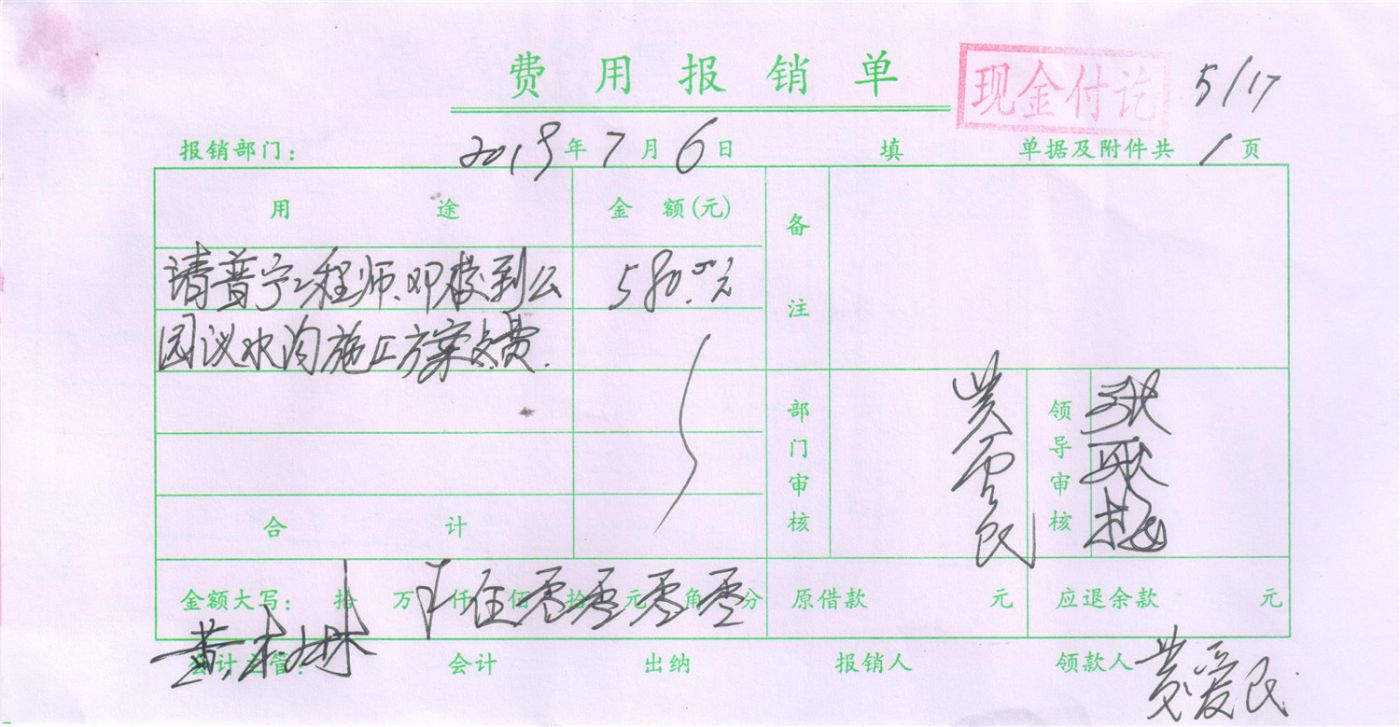 费用报销单
现金付讫
5/17
报销部门： 2019年7月6日 填 单据及附件共1页
用途 金额(元) 备注
请普宁工程师、邓榕到公 580.00元
园议水沟施工方案交费.
部门审核 领导审核
合计
金额大写： 拾 万 仟 佰 拾 元 角 分 原借款 元 应退余款 元
零零零零
会计主管： 会计 出纳 报销人 领款人 黄爱民